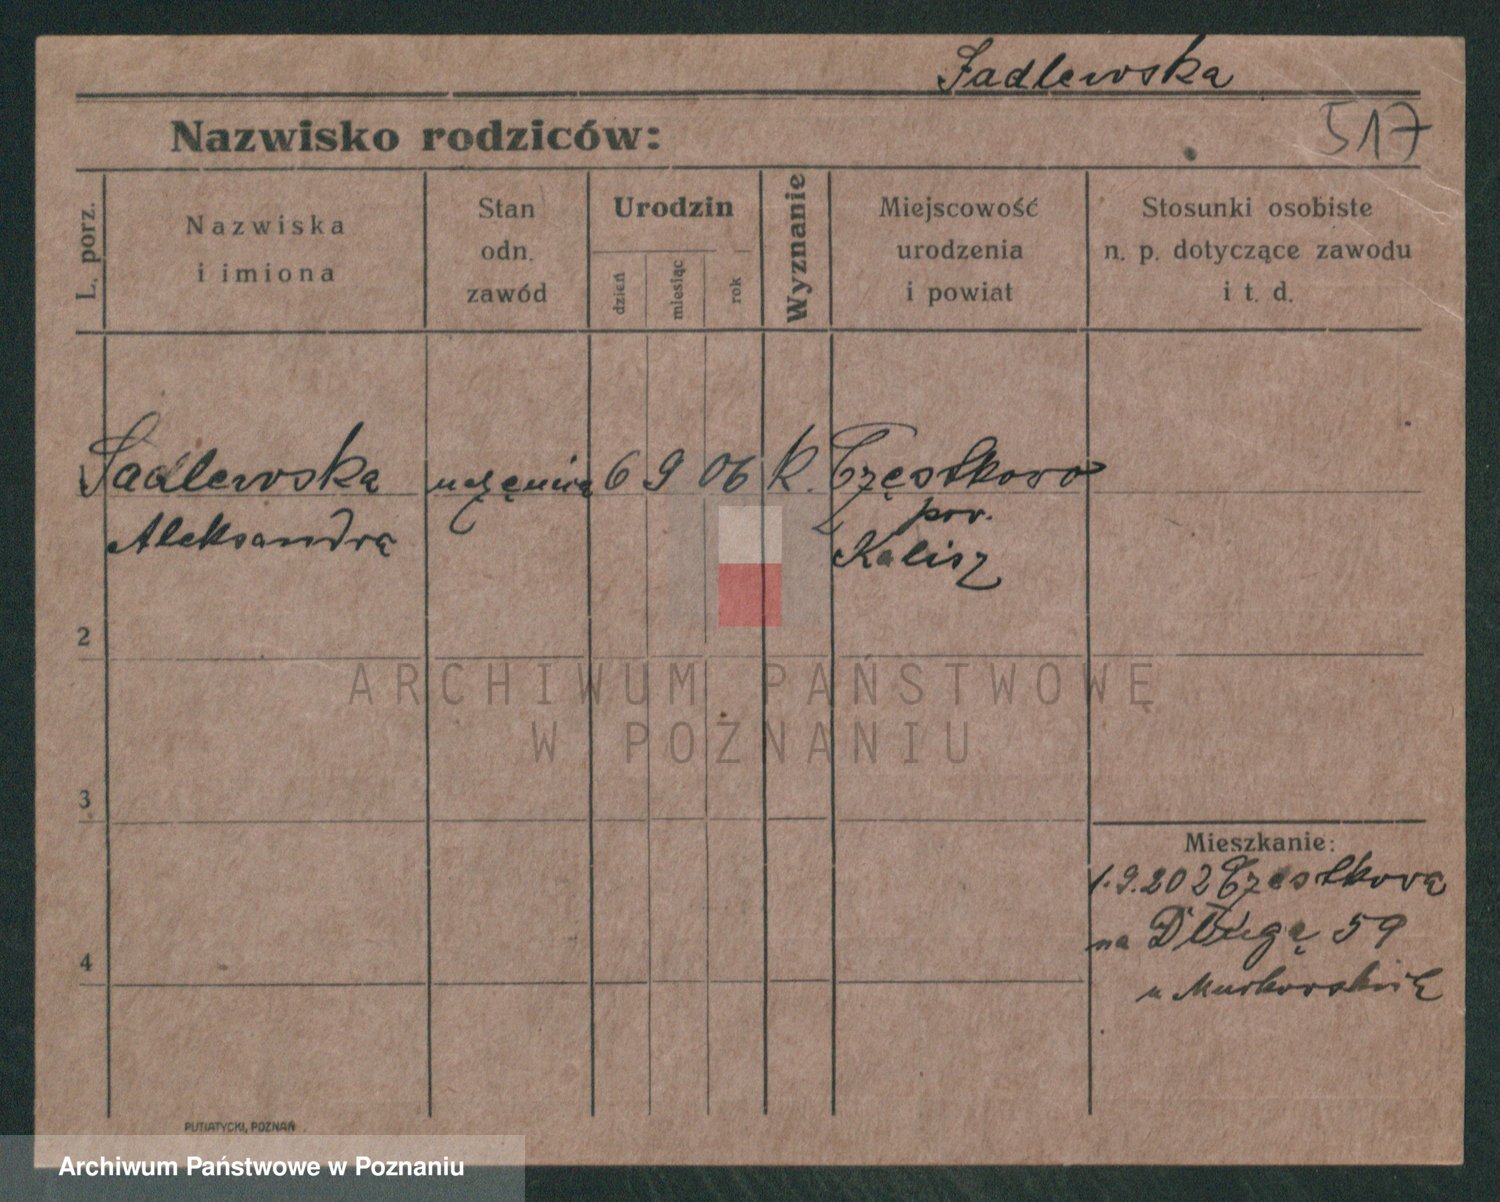 Sadlewska
517
Nazwisko rodziców:
L. porz.
Nazwiska
i imiona
Stan
odn.
zawód
Urodzin
dzień
miesiąc
rok
Wyznanie
Miejscowość
urodzenia
i powiat
Stosunki osobiste
n. p. dotyczące zawodu
i t. d.
Sadlewska uczenica 6 9 06 K. Częstkowo
Aleksandra
pow.
Kalisz
2
ARCHIWUM PAŃSTWOWE
W POZNANIU
3
Mieszkanie:
1.9.20 z Częstkowa
na Długą 59
4
u
PUTIATYCKI, POZNAŃ
Archiwum Państwowe w Poznaniu